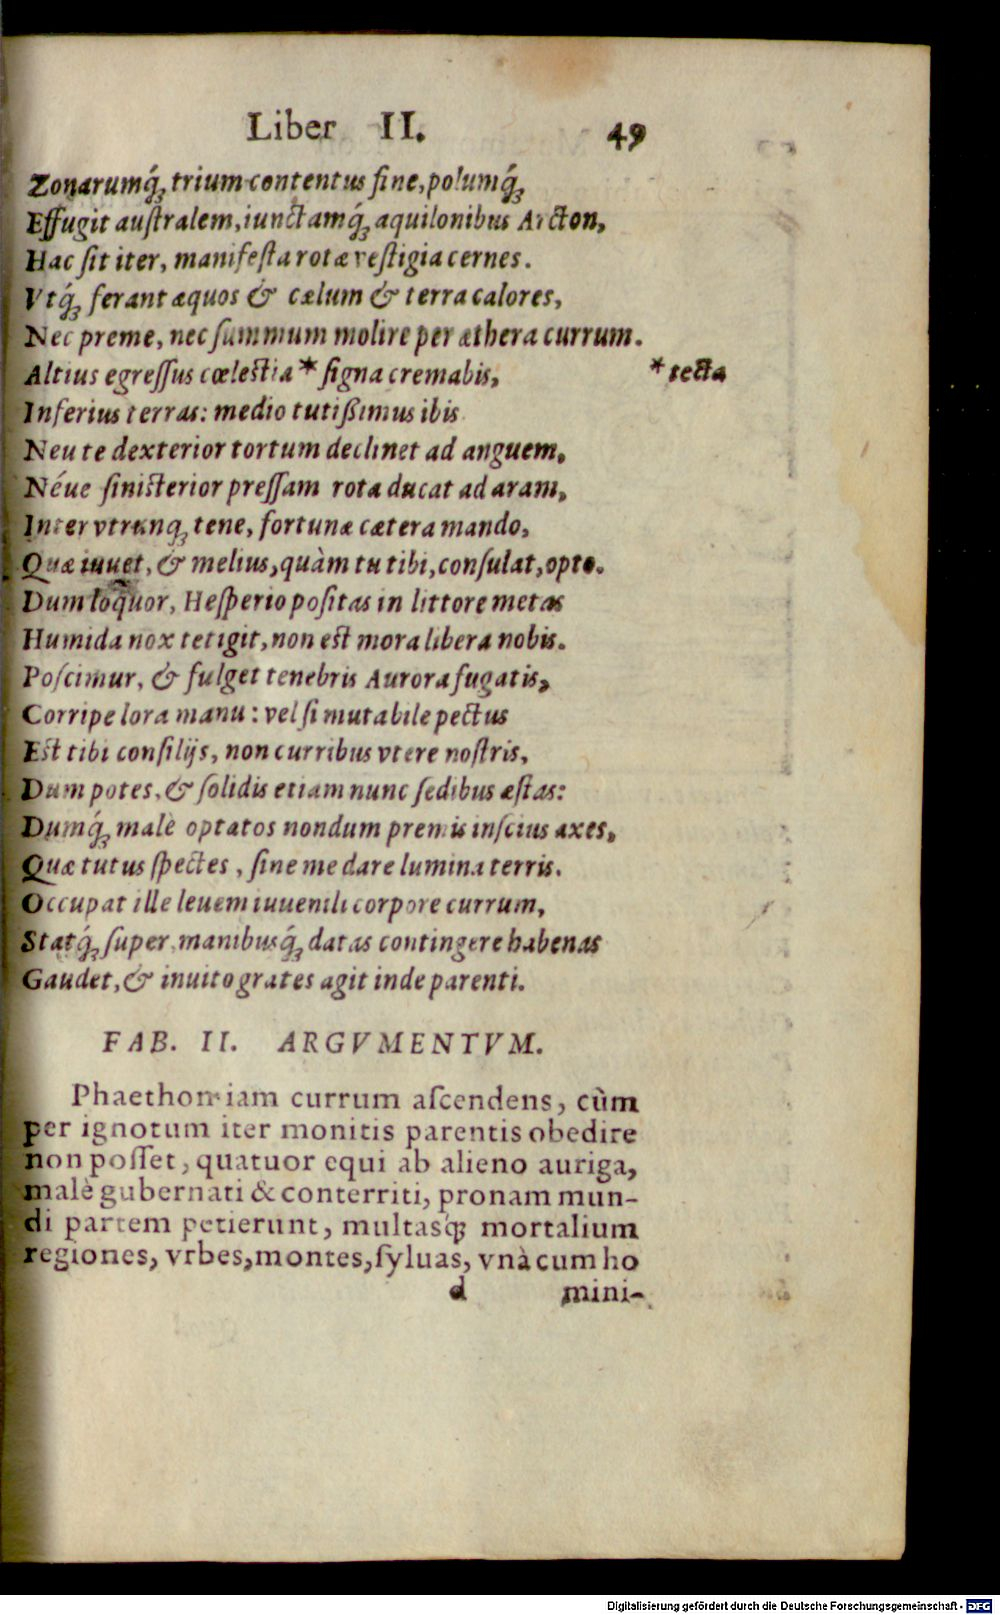 Liber II. 49
Zonarumq́ꝫ trium contentus fine, polumq́ꝫ
Effugit auſtralem, iunctamq́ꝫ aquilonibus Arcton,
Hac ſit iter, manifeſta rotæ veſtigia cernes.
Vtq́ꝫ ferant æquos & cælum & terra calores,
Nec preme, nec ſummum molire per æthera currum.
Altius egreſſus cœleſtia * ſigna cremabis, * tecta
Inferius terras: medio tutißimus ibis
Neu te dexterior tortum declinet ad anguem,
Néue ſiniſterior preſſam rota ducat ad aram,
Inter vtrunqꝫ tene, fortunæ cætera mando,
Quæ iuuet, & melius, quàm tu tibi, conſulat, opto.
Dum loquor, Heſperio poſitas in littore metas
Humida nox tetigit, non eſt mora libera nobis.
Poſcimur, & fulget tenebris Aurora fugatis,
Corripe lora manu: vel ſi mutabile pectus
Eſt tibi conſilijs, non curribus vtere noſtris,
Dum potes, & ſolidis etiam nunc ſedibus æſtas:
Dumq́ꝫ malè optatos nondum premis inſcius axes,
Quæ tutus ſpectes, ſine me dare lumina terris.
Occupat ille leuem iuuenili corpore currum,
Statq́ꝫ ſuper, manibusq́ꝫ datas contingere habenas
Gaudet, & inuito grates agit inde parenti.
FAB. II. ARGVMENTVM.
Phaethon iam currum aſcendens, cùm
per ignotum iter monitis parentis obedire
non poſſet, quatuor equi ab alieno auriga,
malè gubernati & conterriti, pronam mun-
di partem petierunt, multasq́ꝫ mortalium
regiones, vrbes, montes, ſyluas, vnà cum ho
d mini-
Digitalisierung gefördert durch die Deutsche Forschungsgemeinschaft - DFG